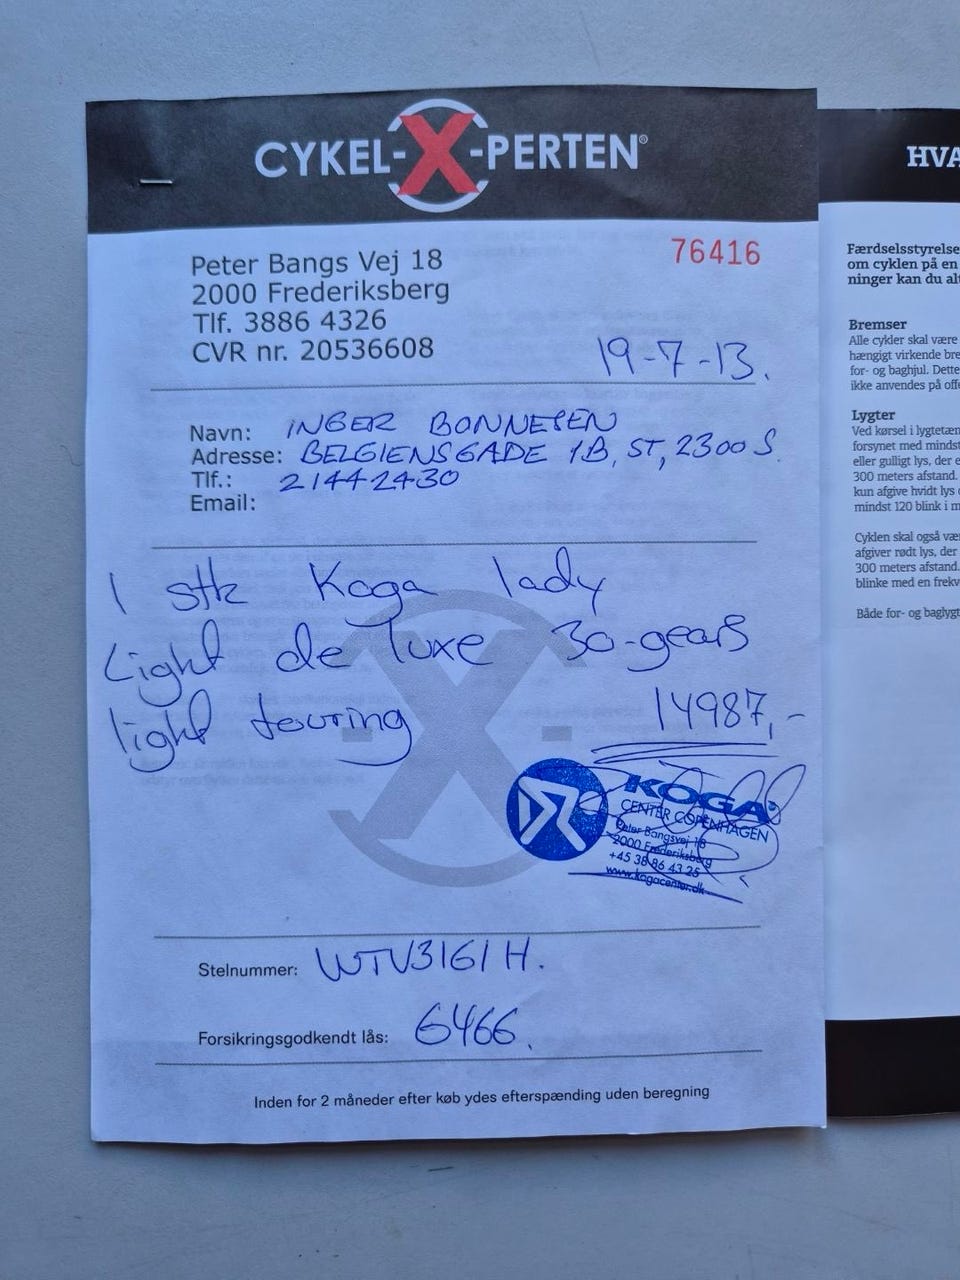 CYKEL-X-PERTEN®
Peter Bangs Vej 18
2000 Frederiksberg
Tlf. 3886 4326
CVR nr. 20536608
76416
19-7-13.
Navn: INGER BONNESEN
Adresse: BELGIENSGADE 1B, ST, 2300 S.
Tlf.: 21442430
Email:
1 stk Koga lady
Light de luxe 30-gears
light touring 14987,-
KOGA
CENTER COPENHAGEN
Peter Bangsvej 18
2000 Frederiksberg
+45 38 86 43 25
www.kogacenter.dk
Stelnummer: WTV3161H.
Forsikringsgodkendt lås: 6466.
Inden for 2 måneder efter køb ydes efterspænding uden beregning
HVA
Færdselsstyrelse
om cyklen på en
ninger kan du alt
Bremser
Alle cykler skal være
hængigt virkende bre
for- og baghjul. Dette
ikke anvendes på offe
Lygter
Ved kørsel i lygtetæn
forsynet med mindst
eller gulligt lys, der e
300 meters afstand.
kun afgive hvidt lys
mindst 120 blink i m
Cyklen skal også væ
afgiver rødt lys, der
300 meters afstand.
blinke med en frekv
Både for- og baglygt